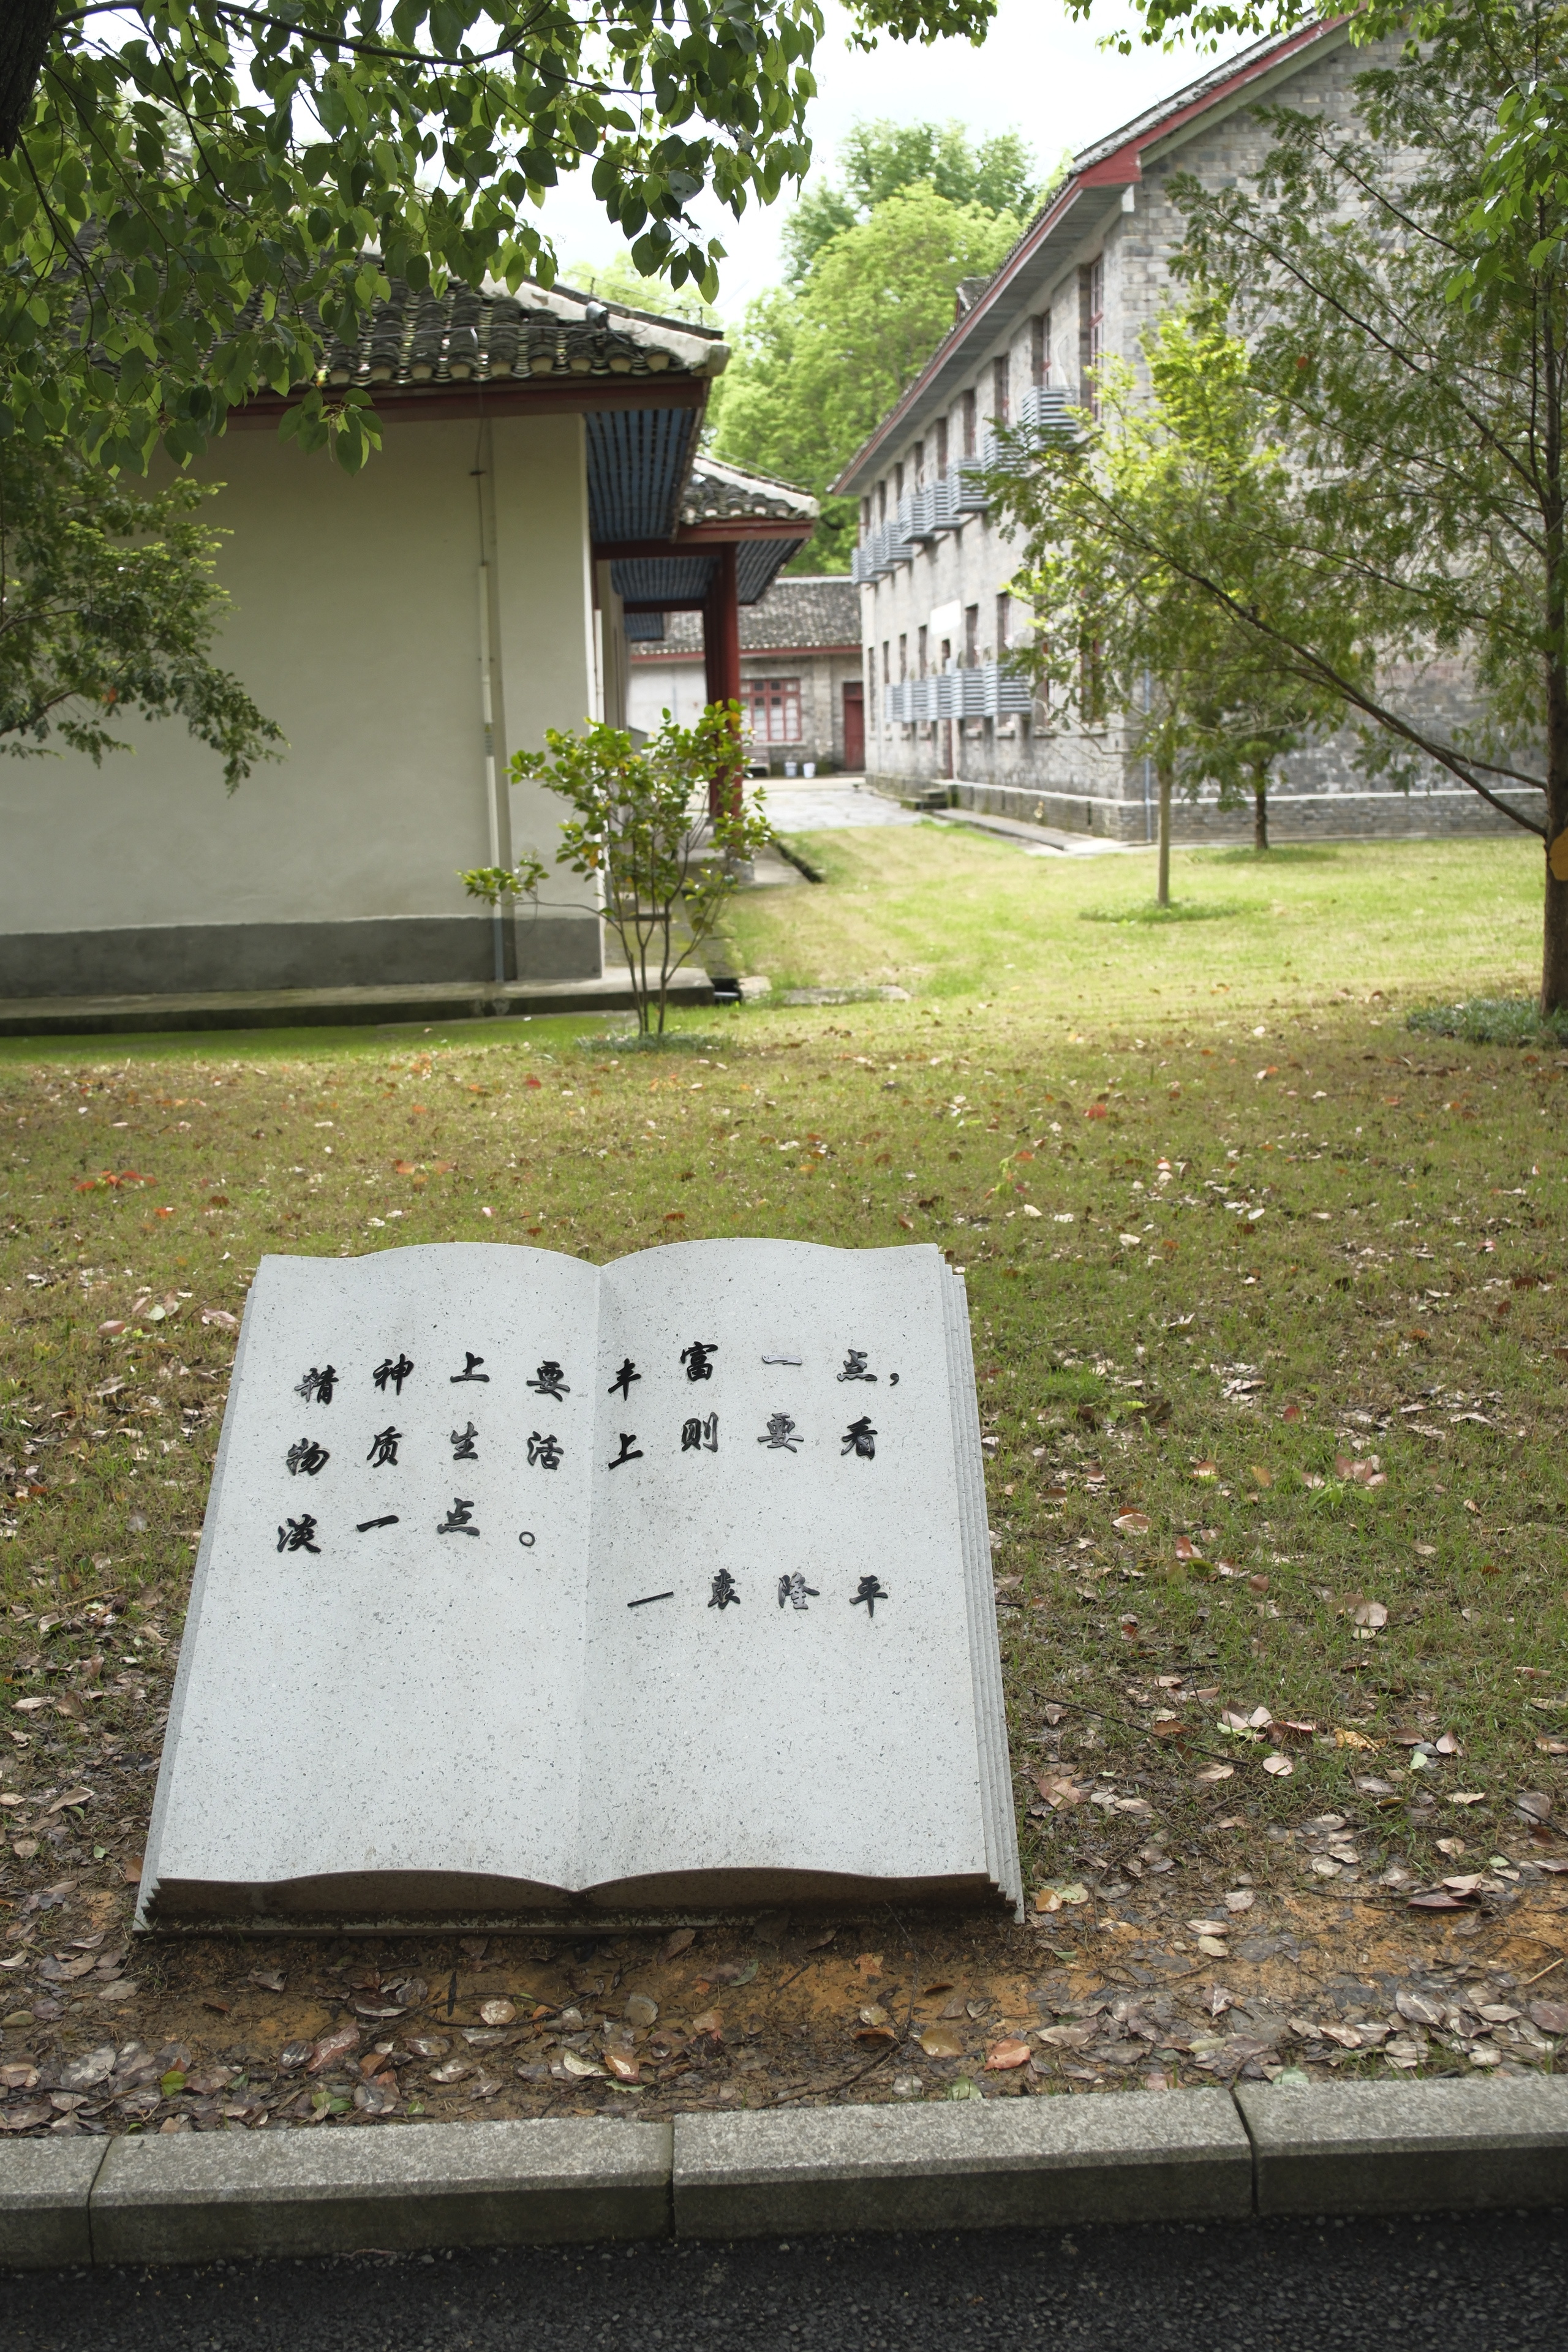 精神上要丰富一点，
物质生活上则要看
淡一点。
—袁隆平